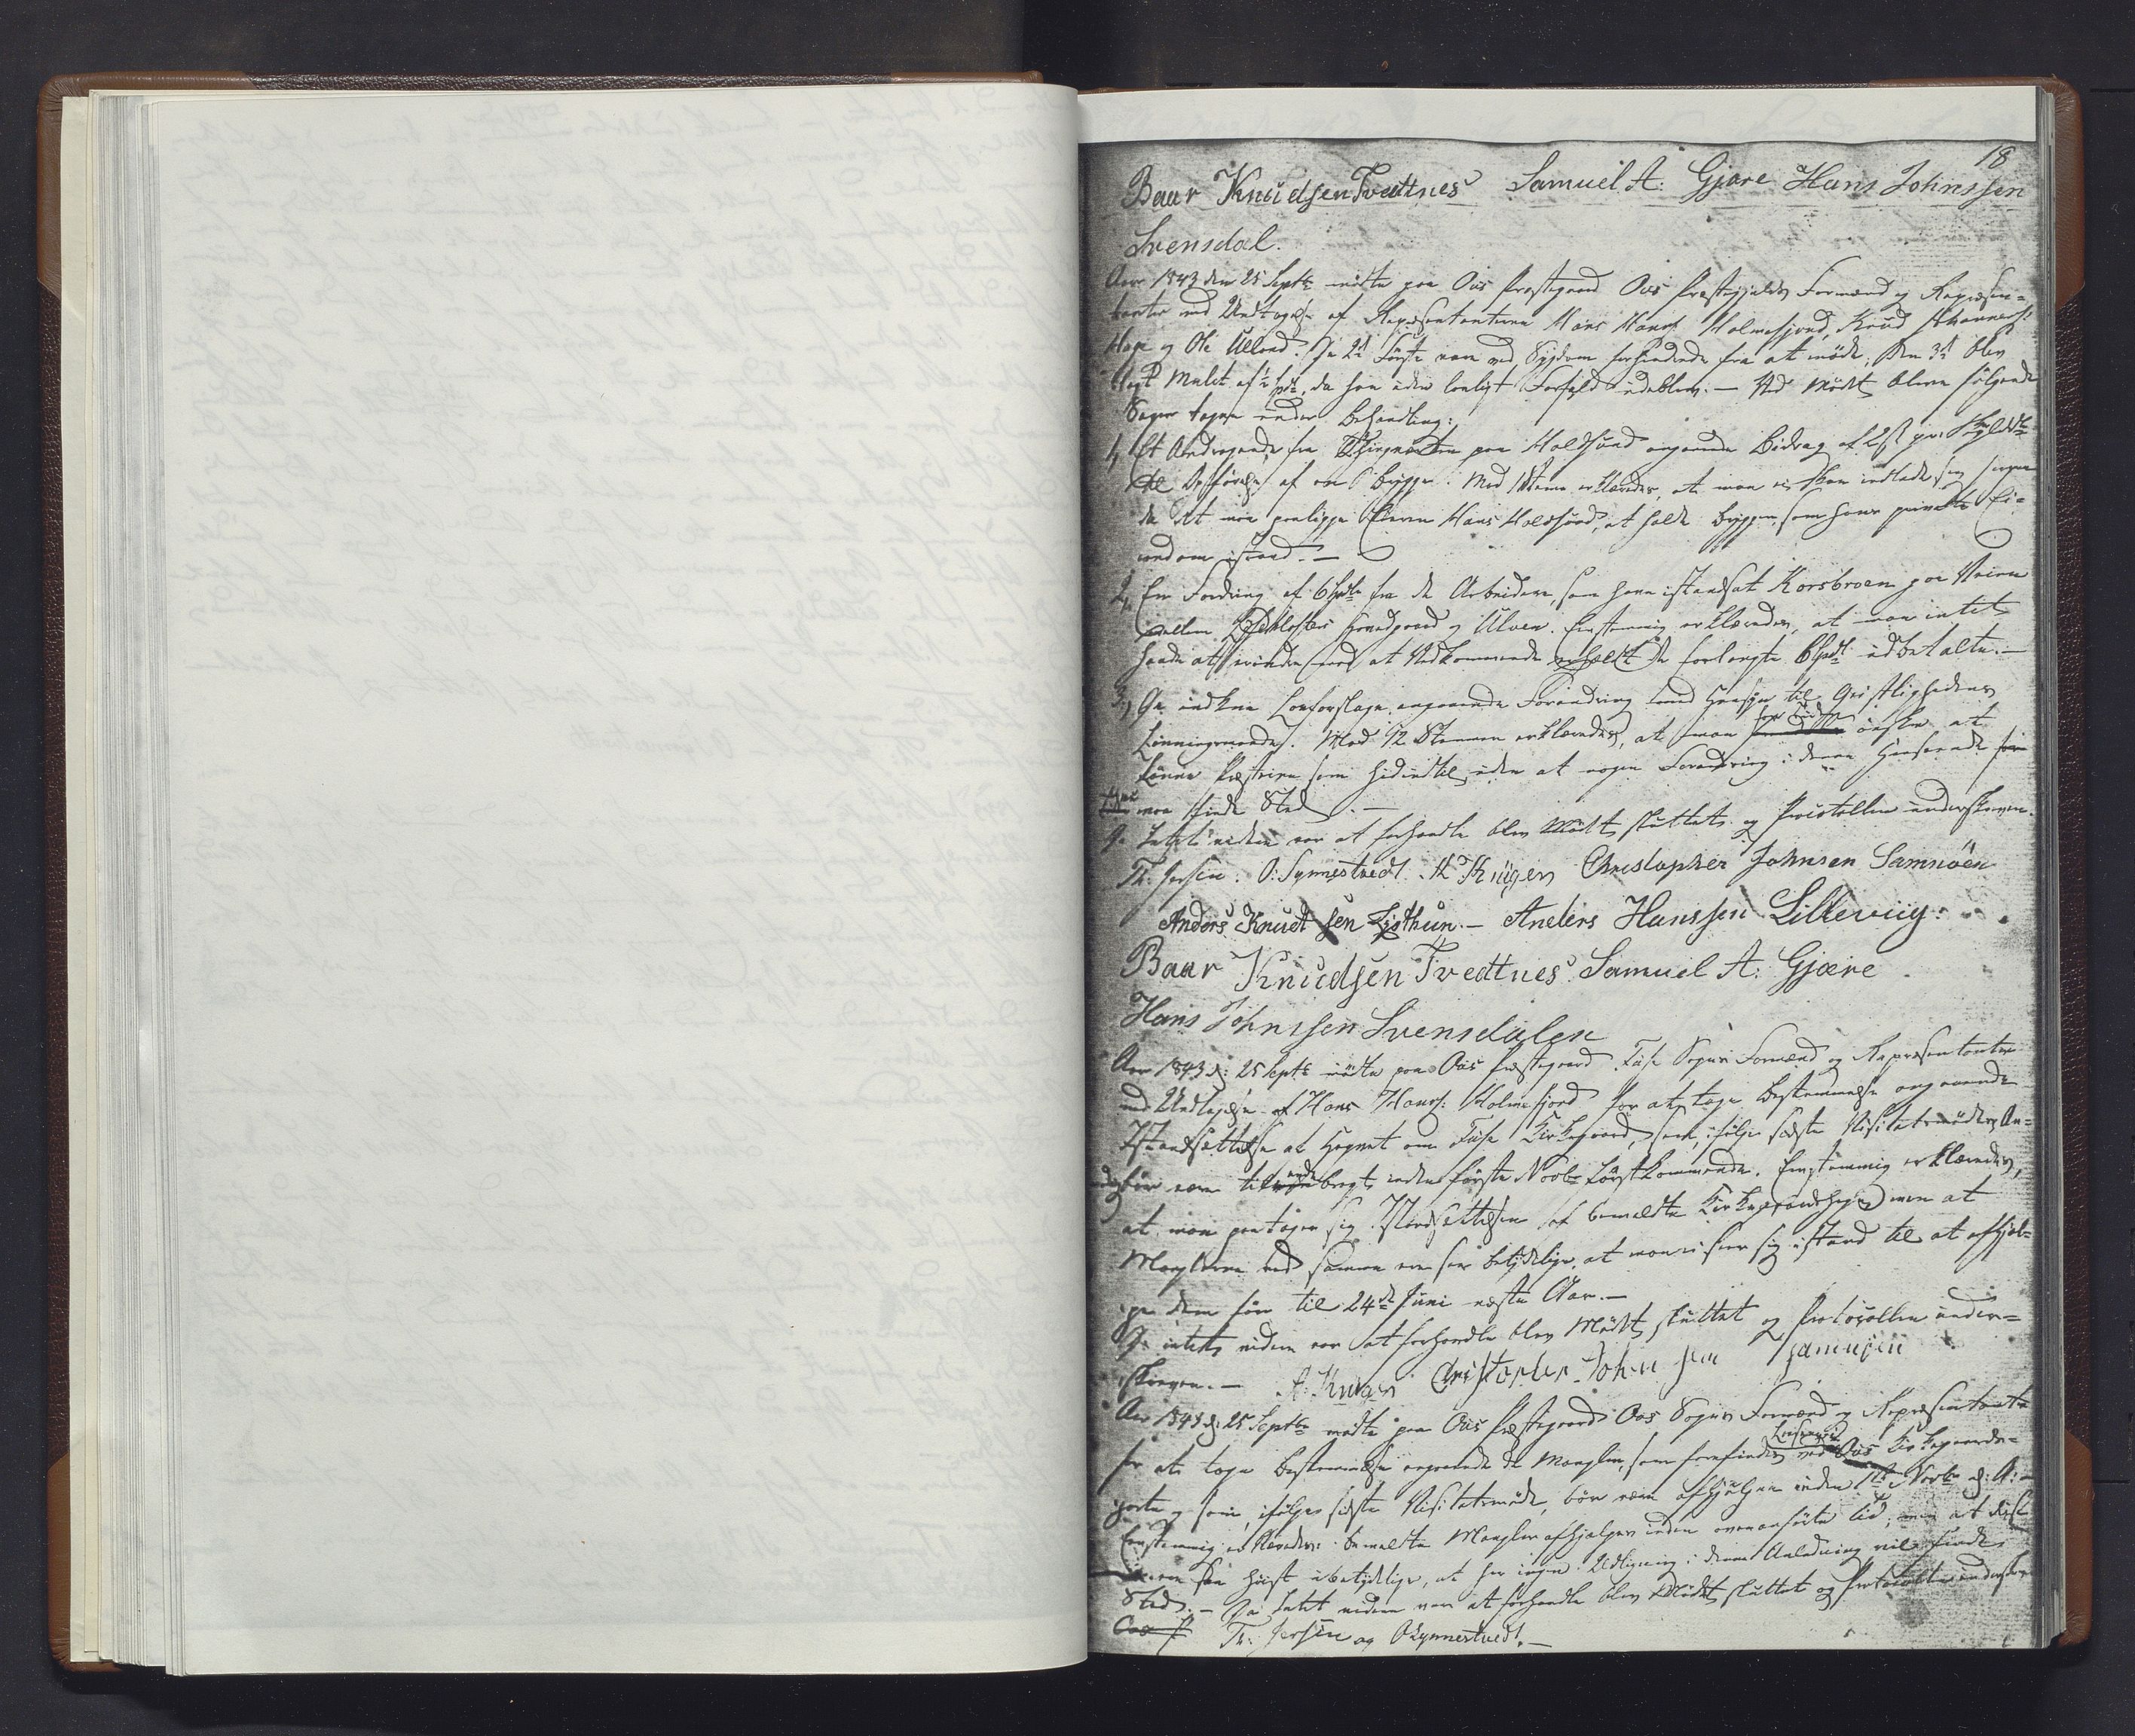 18
Baar Knudsen Tvedtnes Samuel A: Gjøre Hans Johnssen
Svensdal.
Aar 1843 den 25 Septbr mødte paa Oos Præstegaard Oos Præstegjelds Formænd og Repræsen=
tanter med Undtagelse af Repræsentanterne Hans Hans: Holmefjord, Knud
Hage og Ole Ulland. De 2de Første vare ved Sygdom forhindrede fra at møde; den 3die blev
Mulct af ½ Spd, da han uden lovligt Forfald udeblev. — Ved Mødet bleve følgende
Sager tagne under Behandling:
1, Et Andragende fra paa Holdhund angaaende Bidrag af 2 ß pr: Skylddlr
til Opførelse af en Brygge. Med Stemmer erklæredes, at man ei kan indlade sig herpaa
da det maa paaligge Eieren Hans Holdhund, at holde Bryggen, som hans private Ei=
endom istand. —
2, En Fordring af 6 Spdlr fra de Arbeidere, som have istandsat Korsbroen paa Veien
mellem Lysekloster Hovedgaard og Ulven. Eenstemmig erklæredes, at man intet
havde at erindre mod at Vedkommende erholdt de forlangte 6 Spdl udbetalte. —
3, De indkomne Lovforslage angaaende Forandring med Hensyn til Geistlighedens
Lønningsmaade. Med 12 Stemmer erklæredes, at man ønske at
lønne Præsterne som hidindtil, uden at nogen Forandring i denne Henseende
maa finde Sted. —
Da Intet videre var at forhandle blev Mødet sluttet og Protocollen underskreven.
Th: Jersin. O: Synnestvedt. A Krüger Christopher Johnsen Samnøen
Anders Knudtsen Lysthun. — Anders Hanssen Lillevüg.
Baar Knudsen Tvedtnes. Samuel A: Gjøre
Hans Johnssen Svensdalen
Aar 1843 d: 25 Septbr mødte paa Oos Præstegaard Fuse Sogns Formænd og Repræsentanter
med Undtagelse af Hans Hans: Holmefjord for at tage Bestemmelse angaaende
Istandsættelse af Hegnet om Fuse Kirkegaard, som, ifølge sidste Visitatsmøde,
bør være tilendebragt inden første Novbr førstkommende. Eenstemmig erklæredes,
at man paatager sig Istandsættelsen af bemeldte Kirkegaardshegn men at
Manglerne ved samme ere saa betydelige, at man ei seer sig istand til at afhjæl=
pe dem før til 24de Juni næste Aar. —
Da intet videre var at forhandle blev Mødet sluttet og Protocollen under=
skreven. — A. Krüger Cristopher Johnsen Samnøen
Aar 1843 d: 25 Septbr mødte paa Oos Præstegaard Oos Sogns Formænd og Repræsentanter
for at tage Bestemmelse angaaende de Mangler, som forefindes ved Oos Kirkegaards=
porte og som, ifølge sidste Visitatsmøde, bør være afhjulpne inden 1ste Novbr d: A: —
Eenstemmig erklæredes: bemeldte Mangler afhjelpes inden ovenanførte Tid, men at disse
ere saa høist ubetydelige, at her ingen Udligning i denne Anledning vil finde
Sted. — Da Intet videre var at forhandle blev Mødet sluttet og Protocollen underskrev
Th: Jersin og O Synnestvedt. —